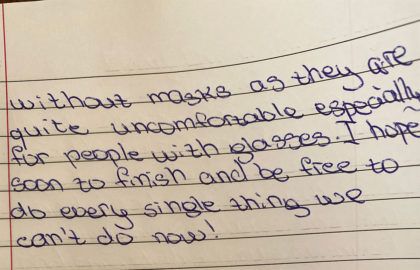 without masks as they are
quite uncomfortable especially
for people with glasses. I hope
soon to finish and be free to
do every single thing we
can't do now!